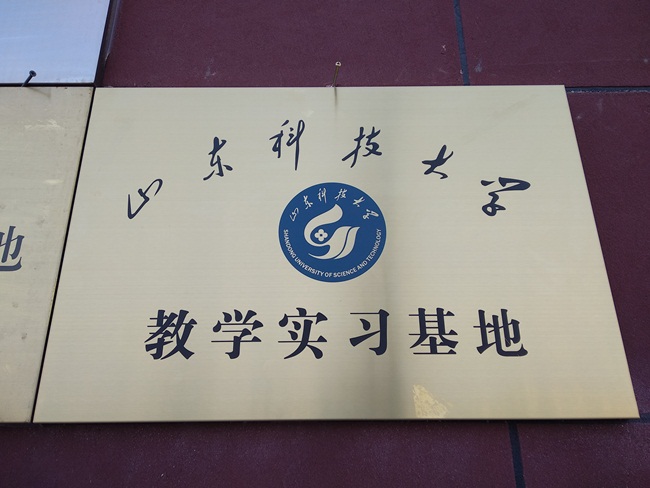 山东科技大学
山东科技大学
SHANDONG UNIVERSITY OF SCIENCE AND TECHNOLOGY
教学实习基地
地